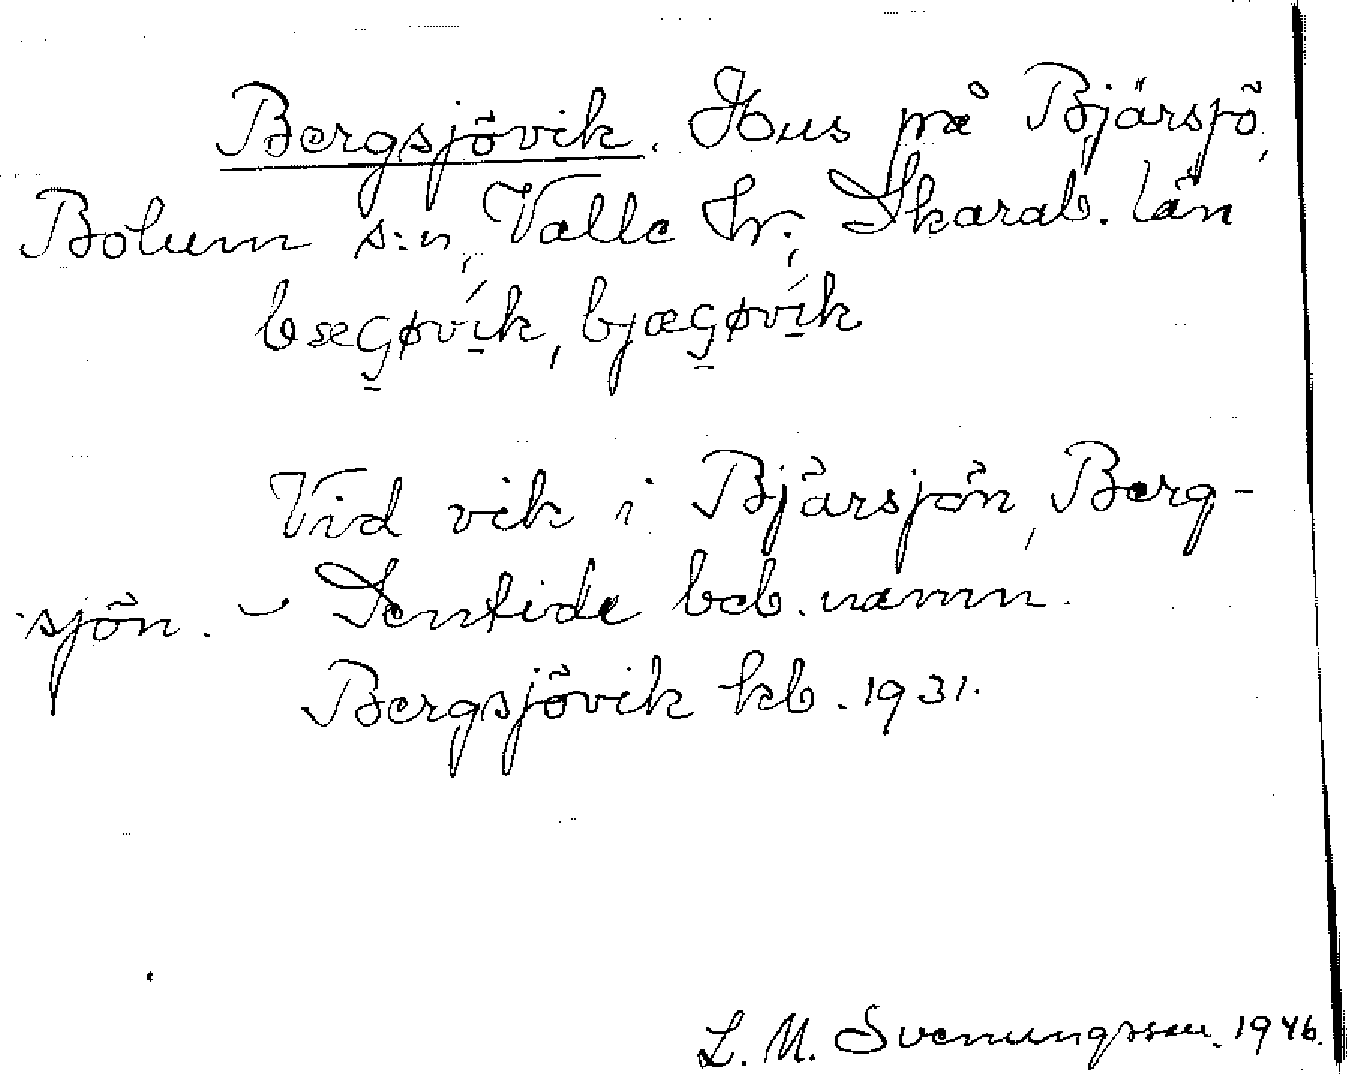 Bergsjövik. Hus på Bjärsjö,
Bolum s:n, Valle hr; Skarab. län
bæGøvík, bjæGøvík
Vid vik i Bjärsjön, Berg-
sjön. – Sentida beb. namn.
Bergsjövik kb. 1931.
L. M. Svenungsson. 1946.